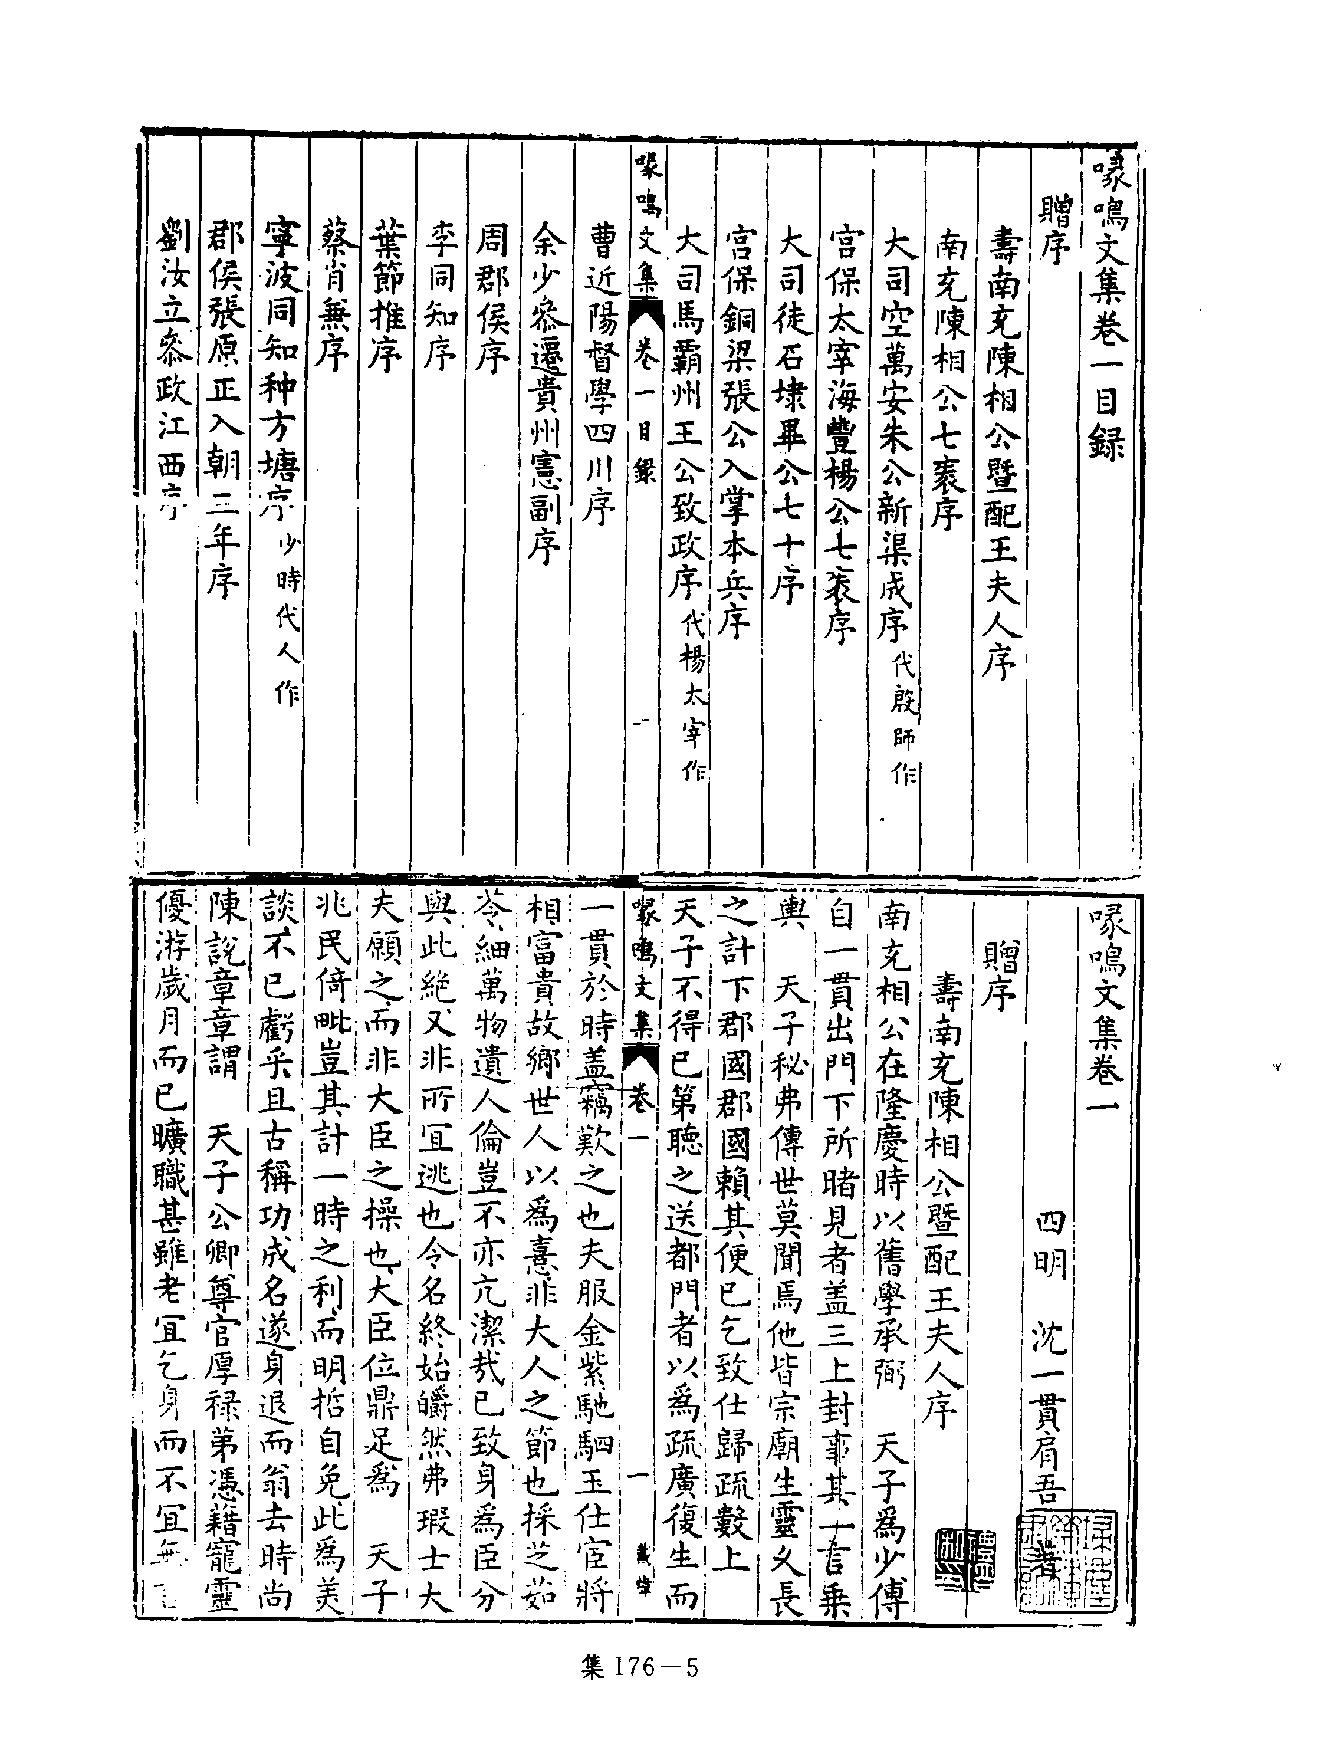 喙鳴文集卷一目録
贈序
壽南充陳相公暨配王夫人序
南充陳相公七袠序
大司空萬安朱公新渠成序代殷師作
宮保太宰海豐楊公七袠序
大司徒石埭畢公七十序
宮保銅梁張公入掌本兵序
大司馬霸州王公致政序代楊太宰作
喙鳴文集 卷一目錄 一
曹近陽督學四川序
余少叅遷貴州憲副序
周郡侯序
李同知序
葉節推序
蔡肖兼序
寧波同知种方塘序少時代人作
郡侯張原正入朝三年序
劉汝立叅政江西序
喙鳴文集卷一
四明 沈一貫肩吾 著
贈序
壽南充陳相公暨配王夫人序
南充相公在隆慶時以舊學承弼 天子爲少傅
自一貫出門下所睹見者盖三上封事其一言乗
輿 天子秘弗傳世莫聞焉他皆宗廟生靈久長
之計下郡國郡國賴其便已乞致仕歸疏數上
天子不得已第聽之送都門者以爲疏廣復生而
喙鳴文集 卷一 一
一貫於時盖竊歎之也夫服金紫馳駟玉仕宦將
相富貴故鄉世人以爲憙非大人之節也採芝茹
苓細萬物遺人倫豈不亦亢潔哉已致身爲臣分
與此絶又非所宜逃也令名終始皭然弗瑕士大
夫願之而非大臣之操也大臣位鼎足爲 天子
兆民倚毗豈其計一時之利而明哲自免此爲美
談不已虧乎且古稱功成名遂身退而翁去時尚
陳說章章謂 天子公卿尊官厚禄第憑藉寵靈
優游歲月而已曠職甚雖老宜乞身而不宜無
集 176－5